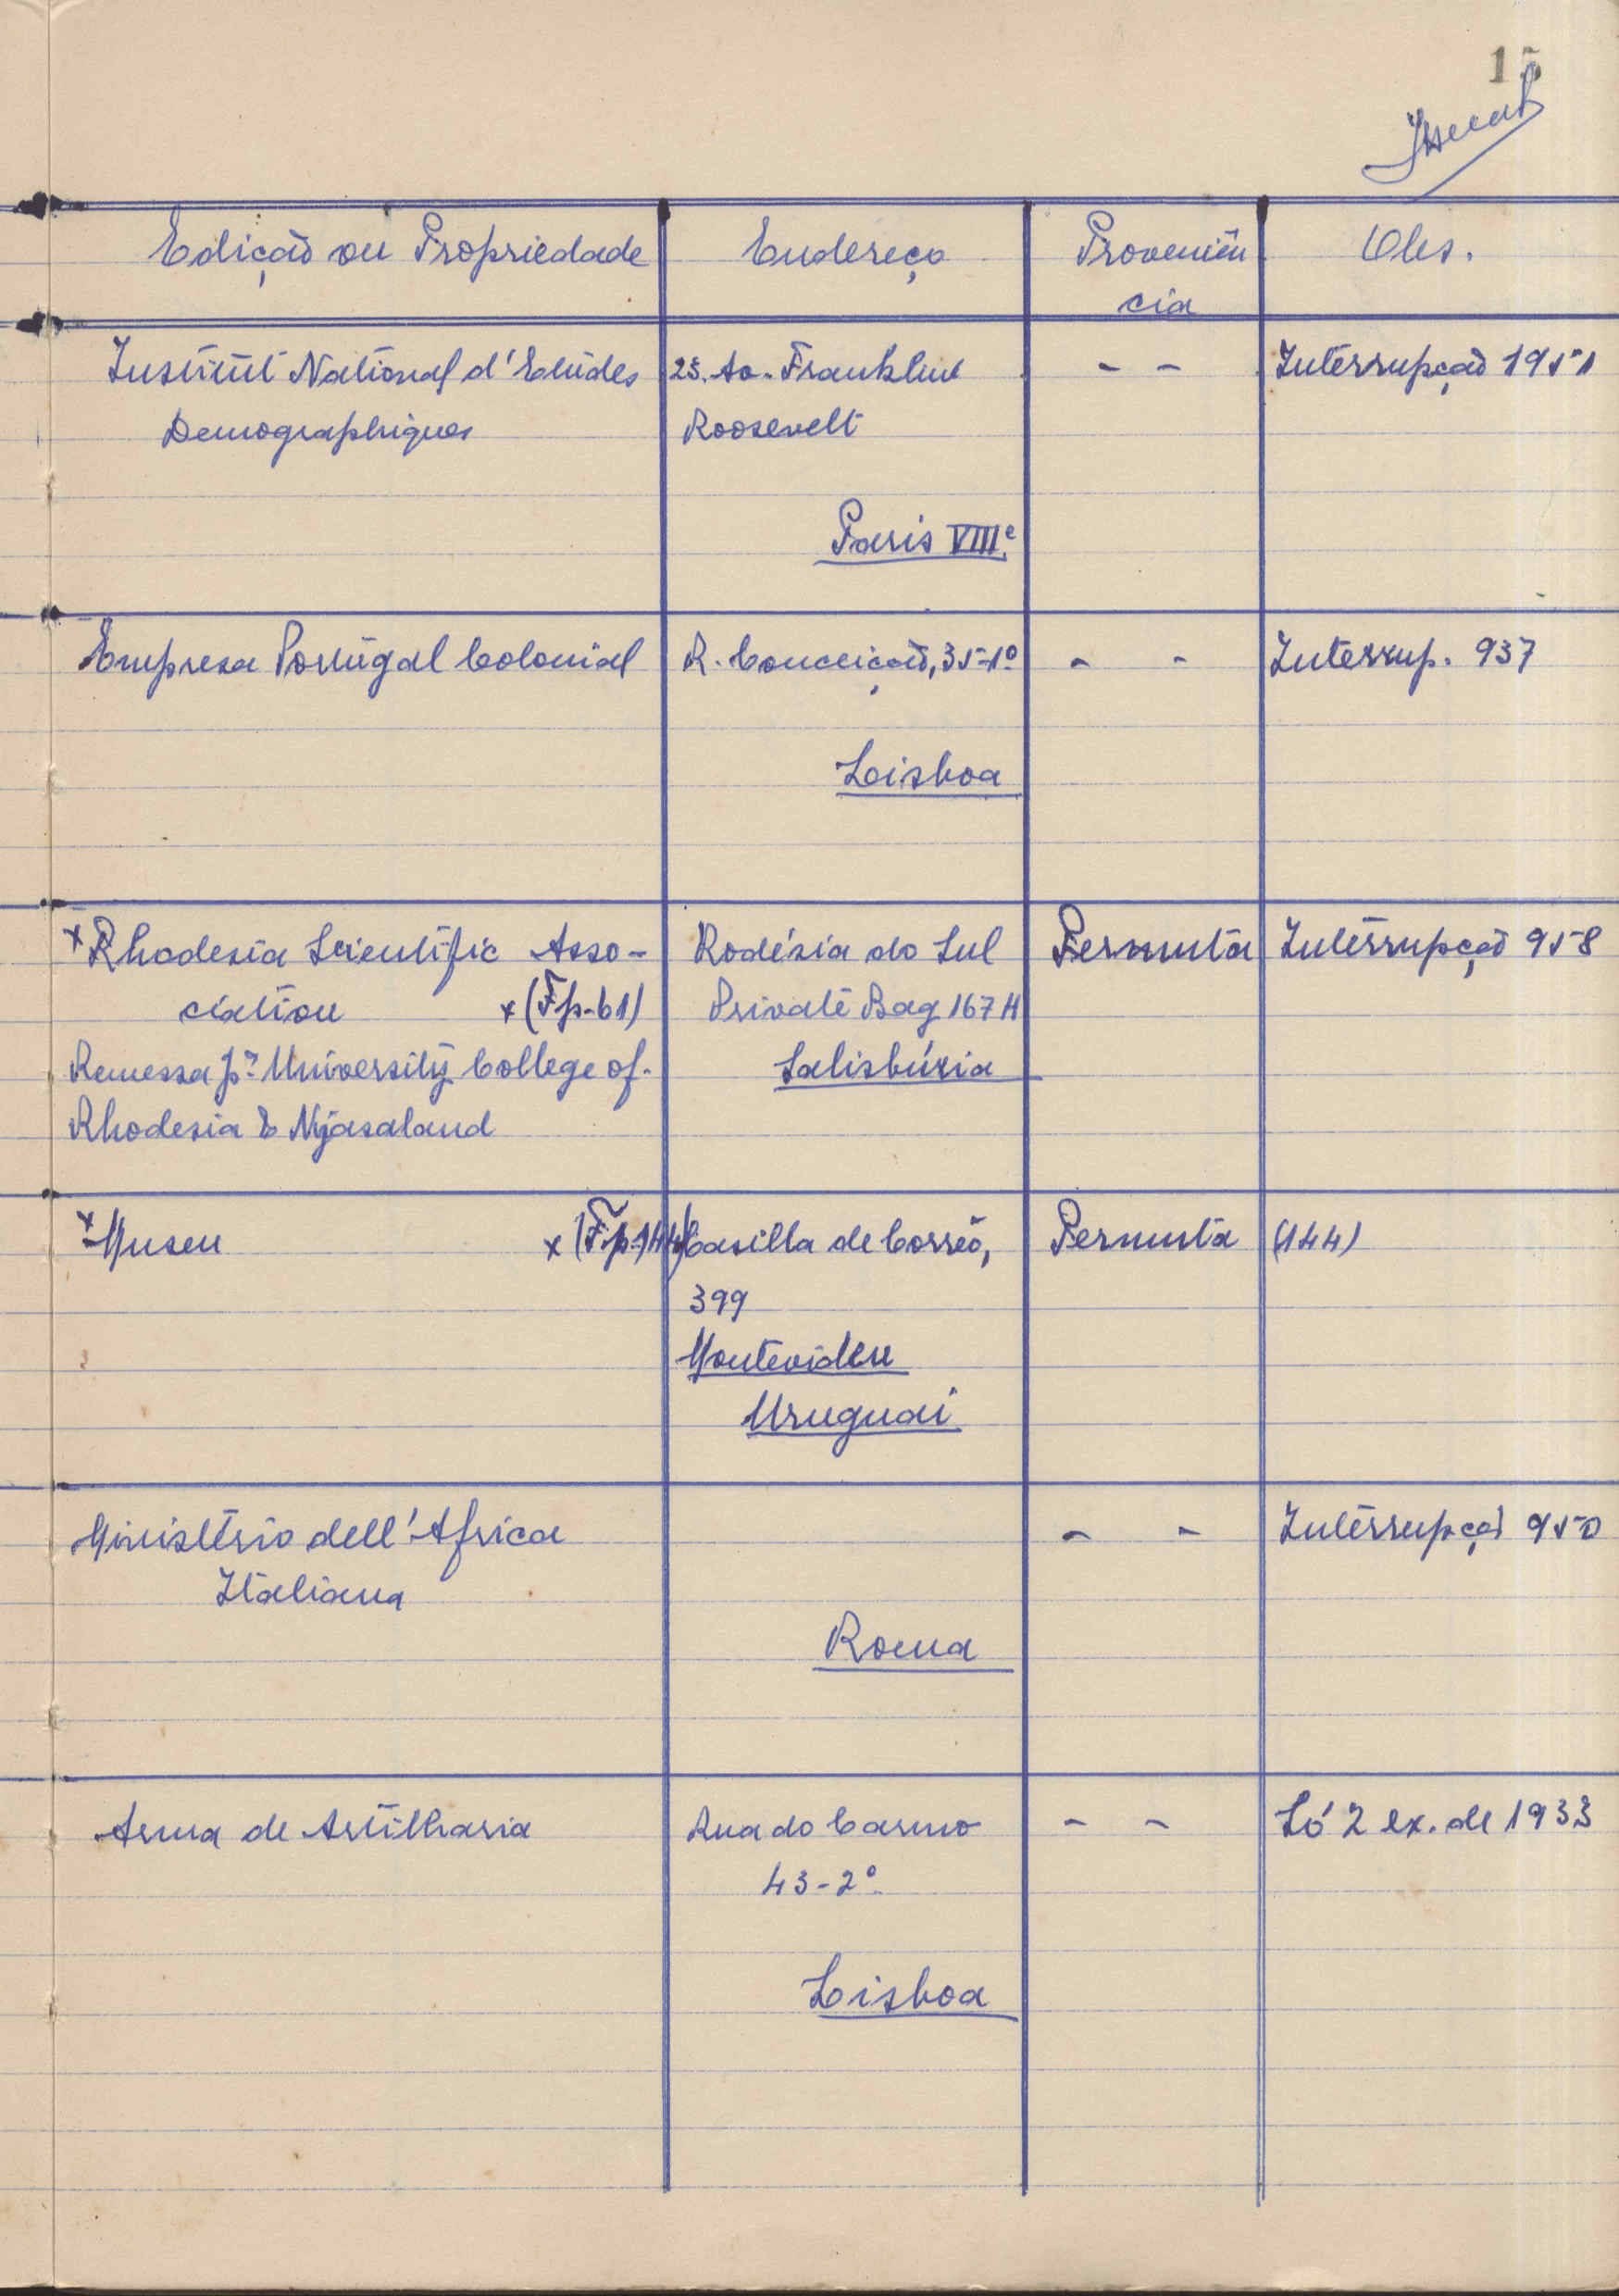 15
Edição ou Propriedade
Endereço
Proveniên
cia
Obs.
Institut National d'Etudes
Demographiques
23. Av. Franklin
Roosevelt
Paris VIIIe
- -
Interrupção 1951
Empresa Portugal Colonial
R. Conceição, 35-1º
Lisboa
- -
Interrup. 937
x Rhodesia Scientific Asso-
ciation x (Fp-61)
Remessa pª University College of
Rhodesia & Nyasaland
Rodésia do Sul
Private Bag 167 H
Salisbúria
Permuta
Interrupção 958
x Museu x (Fp-144)
Casilla de Correo,
399
Montevideu
Uruguai
Permuta
(144)
Ministério dell'Africa
Italiana
Roma
- -
Interrupção 950
Arma de Artilharia
Rua do Carmo
43-2º
Lisboa
- -
Só 2 ex. de 1933